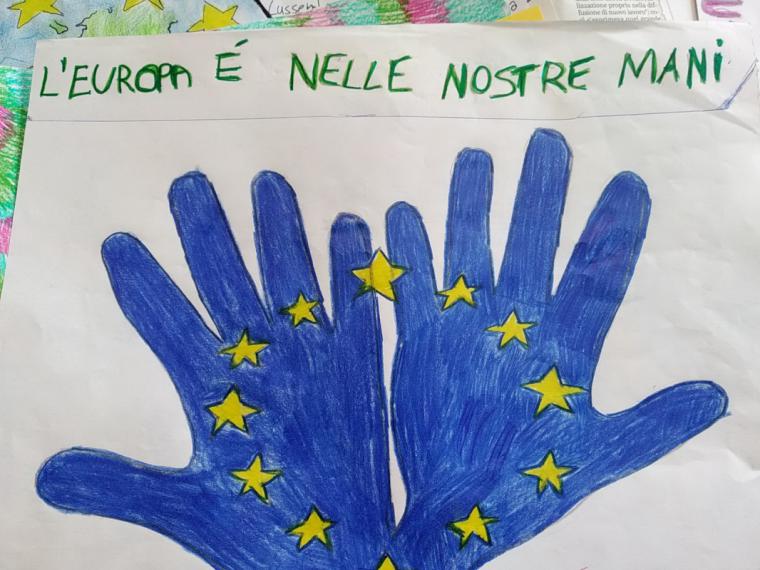 Lussem
lizzazione proprio nella dif-
fusione di nuovo lavoro"; se-
L'EUROPA É NELLE NOSTRE MANi